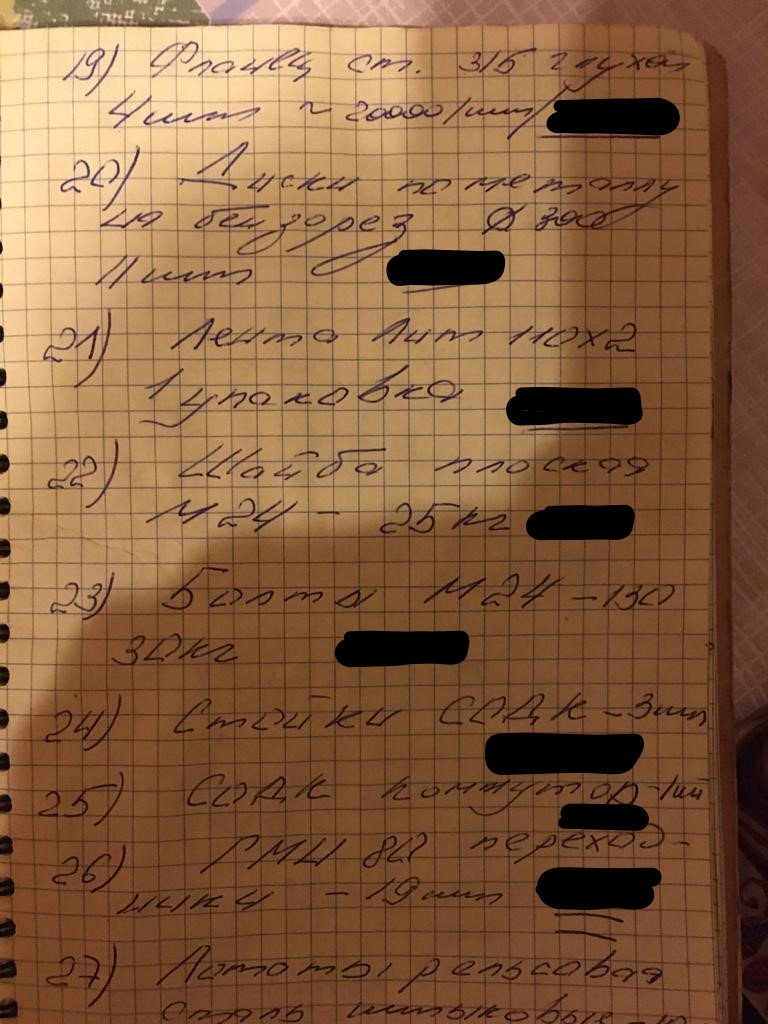 19) Фланец ст. 315 глухой
4шт ~ 20000/шт/
20) Диски по металлу
на бензорез Ø 300
11 шт
21) Лента Лит 110х2
1 упаковка
22) Шайба плоская
М24 - 25кг
23) Болты М24 -130
30кг
24) Стойки СОДК - 3шт
25) СОДК коммутор-1шт
26) ГМЦ 80 переход-
ники - 19шт
27) Лопаты рельсовая
сталь штыковые